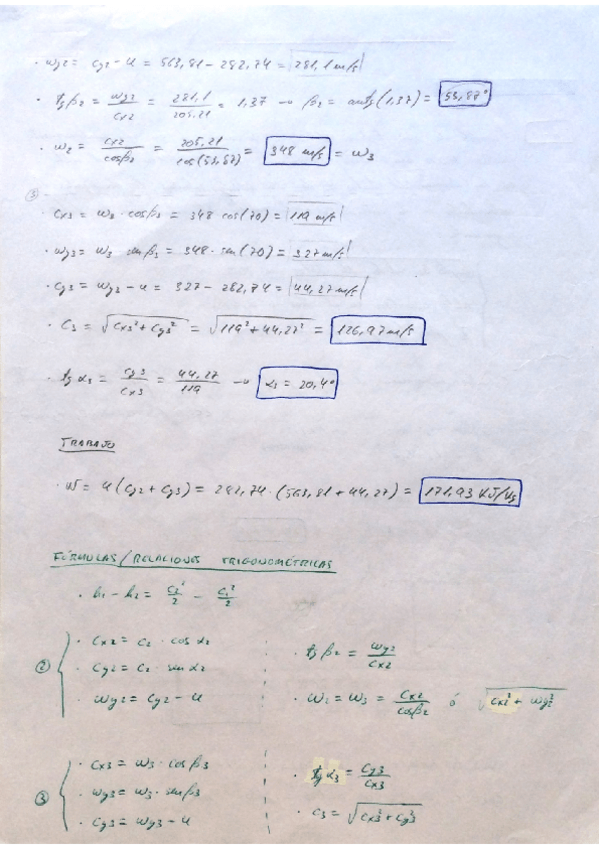 · wy2 = cy2 - u = 563,81 - 282,74 = 281,1 m/s
· tg β2 = wy2/cx2 = 281,1/205,21 = 1,37 → β2 = arctg(1,37) = 53,87°
· w2 = cx2/cosβ2 = 205,21/cos(53,87) = 348 m/s = w3
③
· cx3 = w3 · cosβ3 = 348 cos(70) = 119 m/s
· wy3 = w3 sinβ3 = 348 · sin(70) = 327 m/s
· cy3 = wy3 - u = 327 - 282,74 = 44,27 m/s
· c3 = √(cx3² + cy3²) = √(119² + 44,27²) = 126,97 m/s
· tg α3 = cy3/cx3 = 44,27/119 → α3 = 20,4°
TRABAJO
· W = u (cy2 + cy3) = 282,74 · (563,81 + 44,27) = 171,93 KJ/kg
FÓRMULAS / RELACIONES TRIGONOMÉTRICAS
· h1 - h2 = c2²/2 - c1²/2
② · cx2 = c2 · cos α2
· cy2 = c2 · sin α2
· wy2 = cy2 - u
· tg β2 = wy2/cx2
· w2 = w3 = cx2/cosβ2 ó √(cx2² + wy2²)
③ · cx3 = w3 · cos β3
· wy3 = w3 · sinβ3
· cy3 = wy3 - u
· tg α3 = cy3/cx3
· c3 = √(cx3² + cy3²)